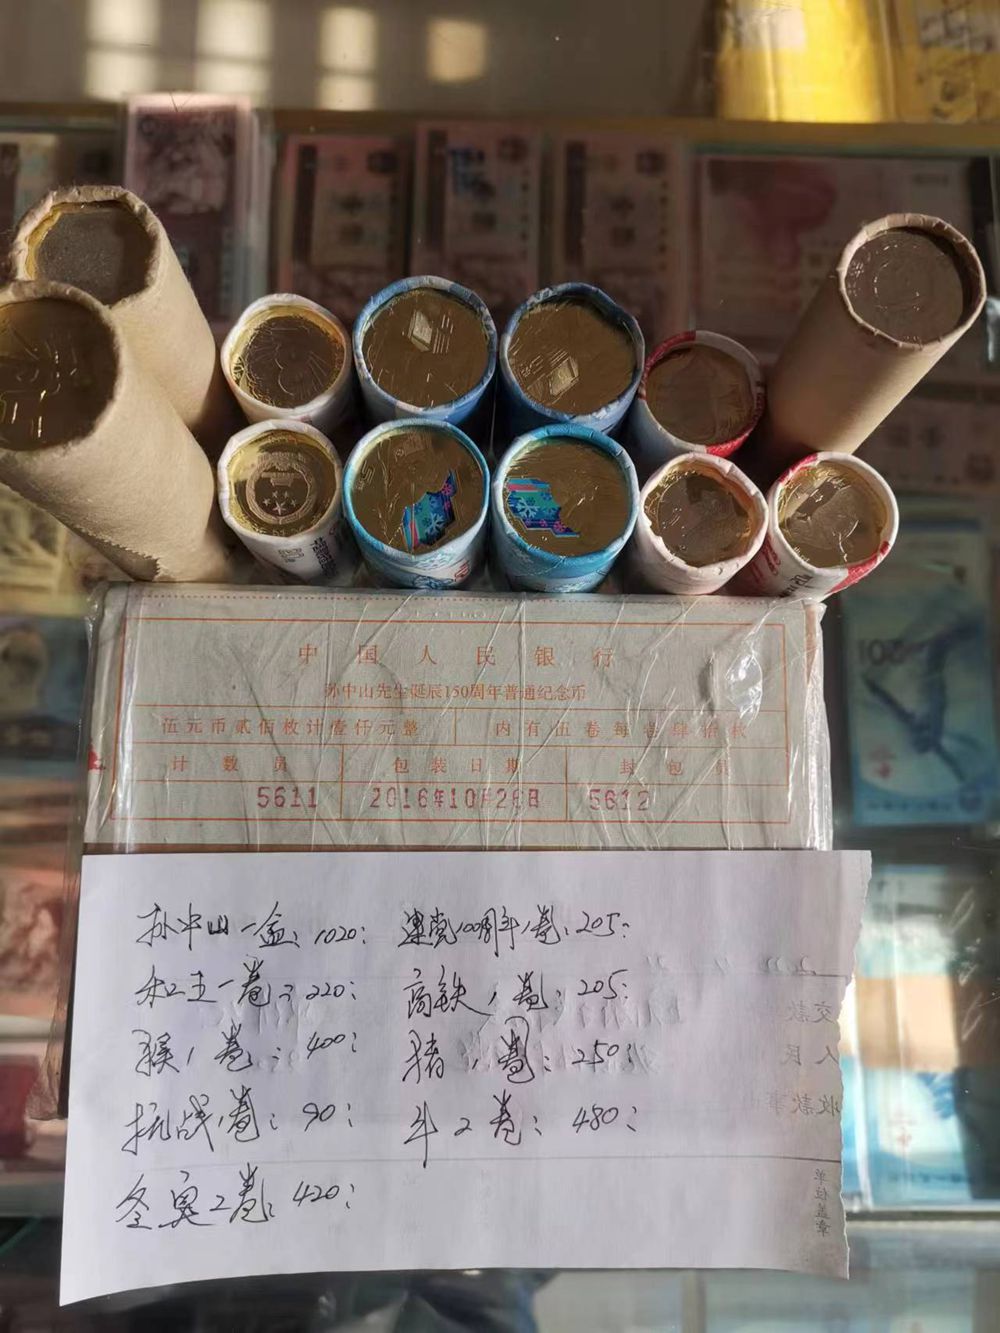 中国人民银行
孙中山先生诞辰150周年普通纪念币
伍元币贰佰枚计壹仟元整 内有五卷每卷肆拾枚
计数员 包装日期 封包员
5611 2016年10月26日 5612
孙中山一盒: 1020: 建党100周年1卷: 205:
和工主一卷: 220: 高铁1卷: 205:
猴1卷: 400: 猪1卷: 250:
抗战1卷: 90: 牛2卷: 480:
冬奥2卷: 420:
交款
人民
收款事
单位盖章